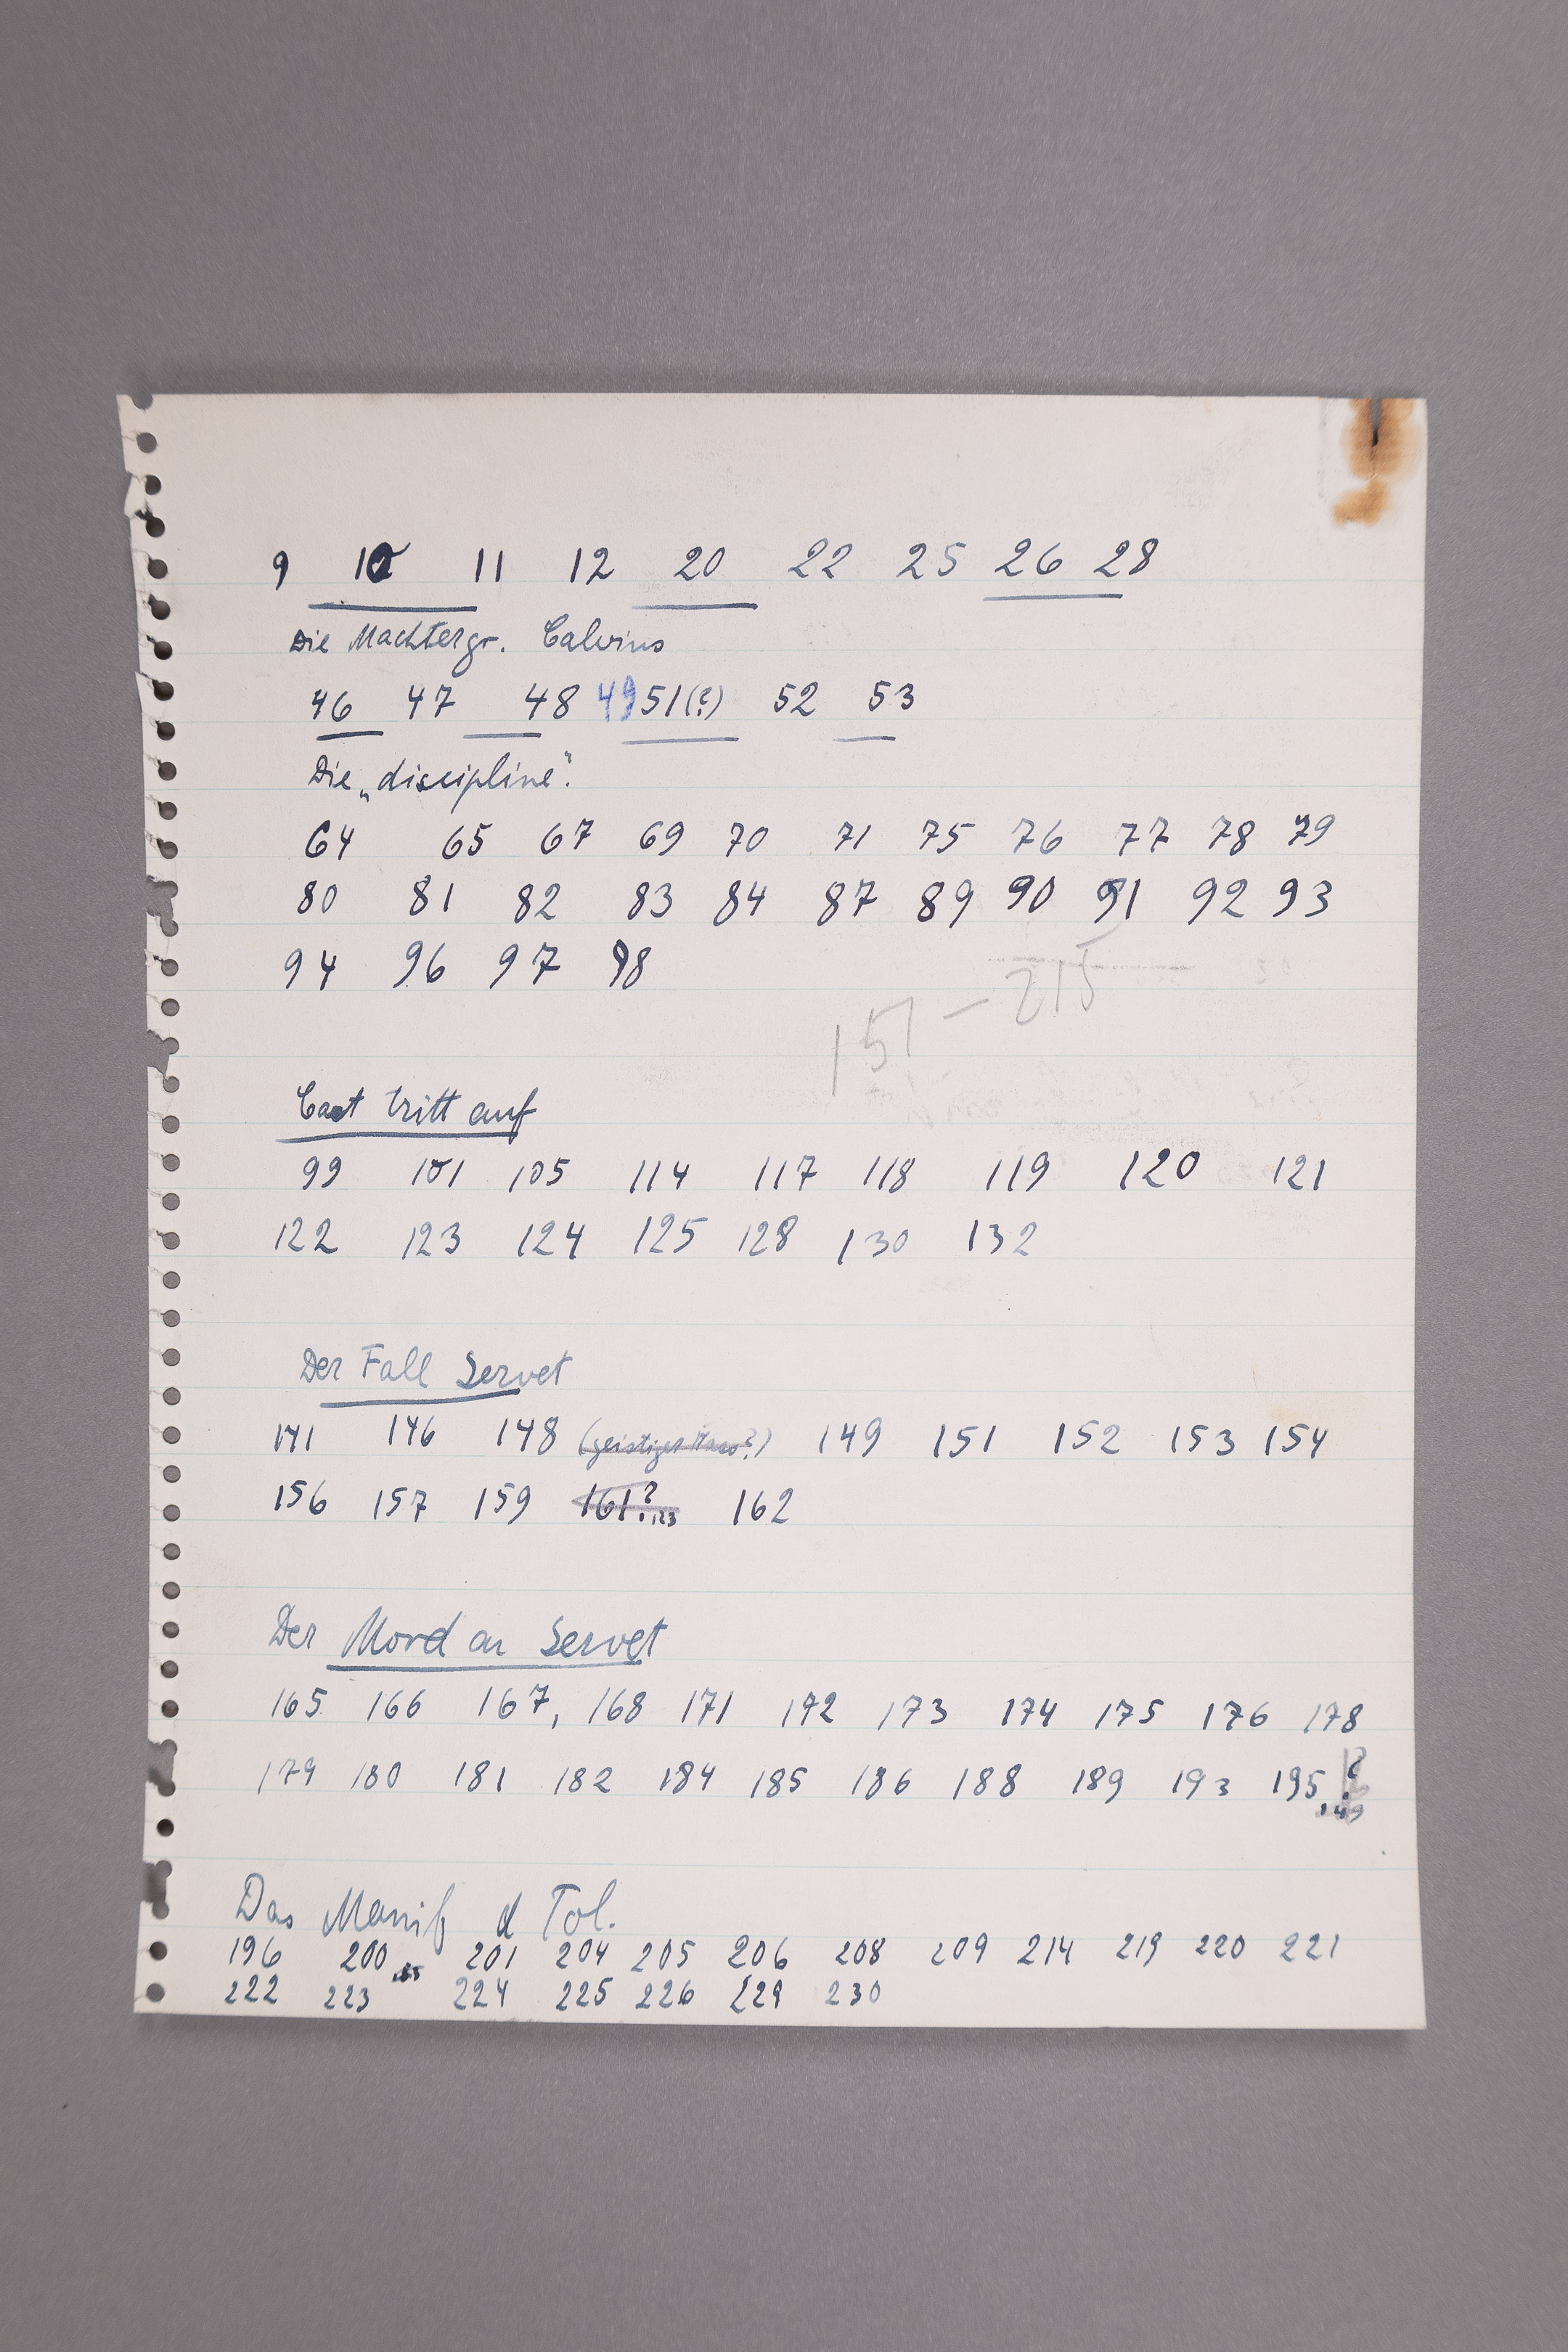 9 10 11 12 20 22 25 26 28
Die Machtergr. Calvins
46 47 48 49 51(?) 52 53
Die „discipline“.
64 65 67 69 70 71 75 76 77 78 79
80 81 82 83 84 87 89 90 91 92 93
94 96 97 98
151 – 215
Cast tritt auf
99 101 105 114 117 118 119 120 121
122 123 124 125 128 130 132
Der Fall Servet
141 146 148 (geistiger ?) 149 151 152 153 154
156 157 159 161? 162
Der Mord an Servet
165 166 167, 168 171 172 173 174 175 176 178
179 180 181 182 184 185 186 188 189 193 195 ?
Das Manif d Tol.
196 200 201 204 205 206 208 209 214 219 220 221
222 223 224 225 226 229 230